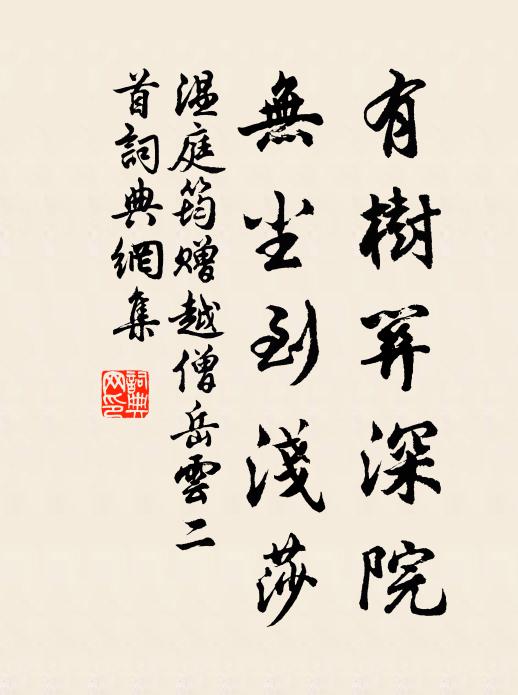 有樹關深院
無尘到淺莎
温庭筠贈越僧岳雲二
首詞典網集
詞典
网印